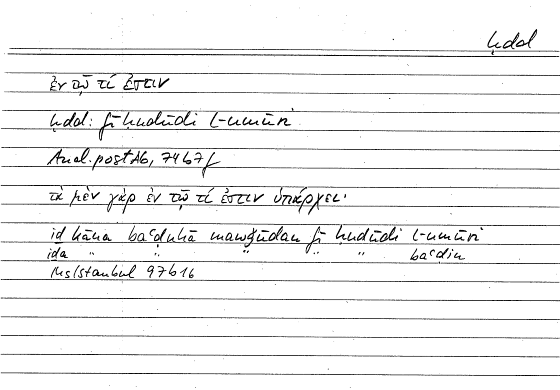 ḥdd
ἐν τῷ τί ἐστιν
ḥdd: fī ḥudūdi l-umūri
Anal. post Ab, 74b7f
τὰ μὲν γὰρ ἐν τῷ τί ἐστιν ὑπάρχει·
iḏ kāna baʿḍuhā mawǧūdan fī ḥudūdi l-umūri
iḏa " " " " " baʿḍin
Ms Istanbul 97b16